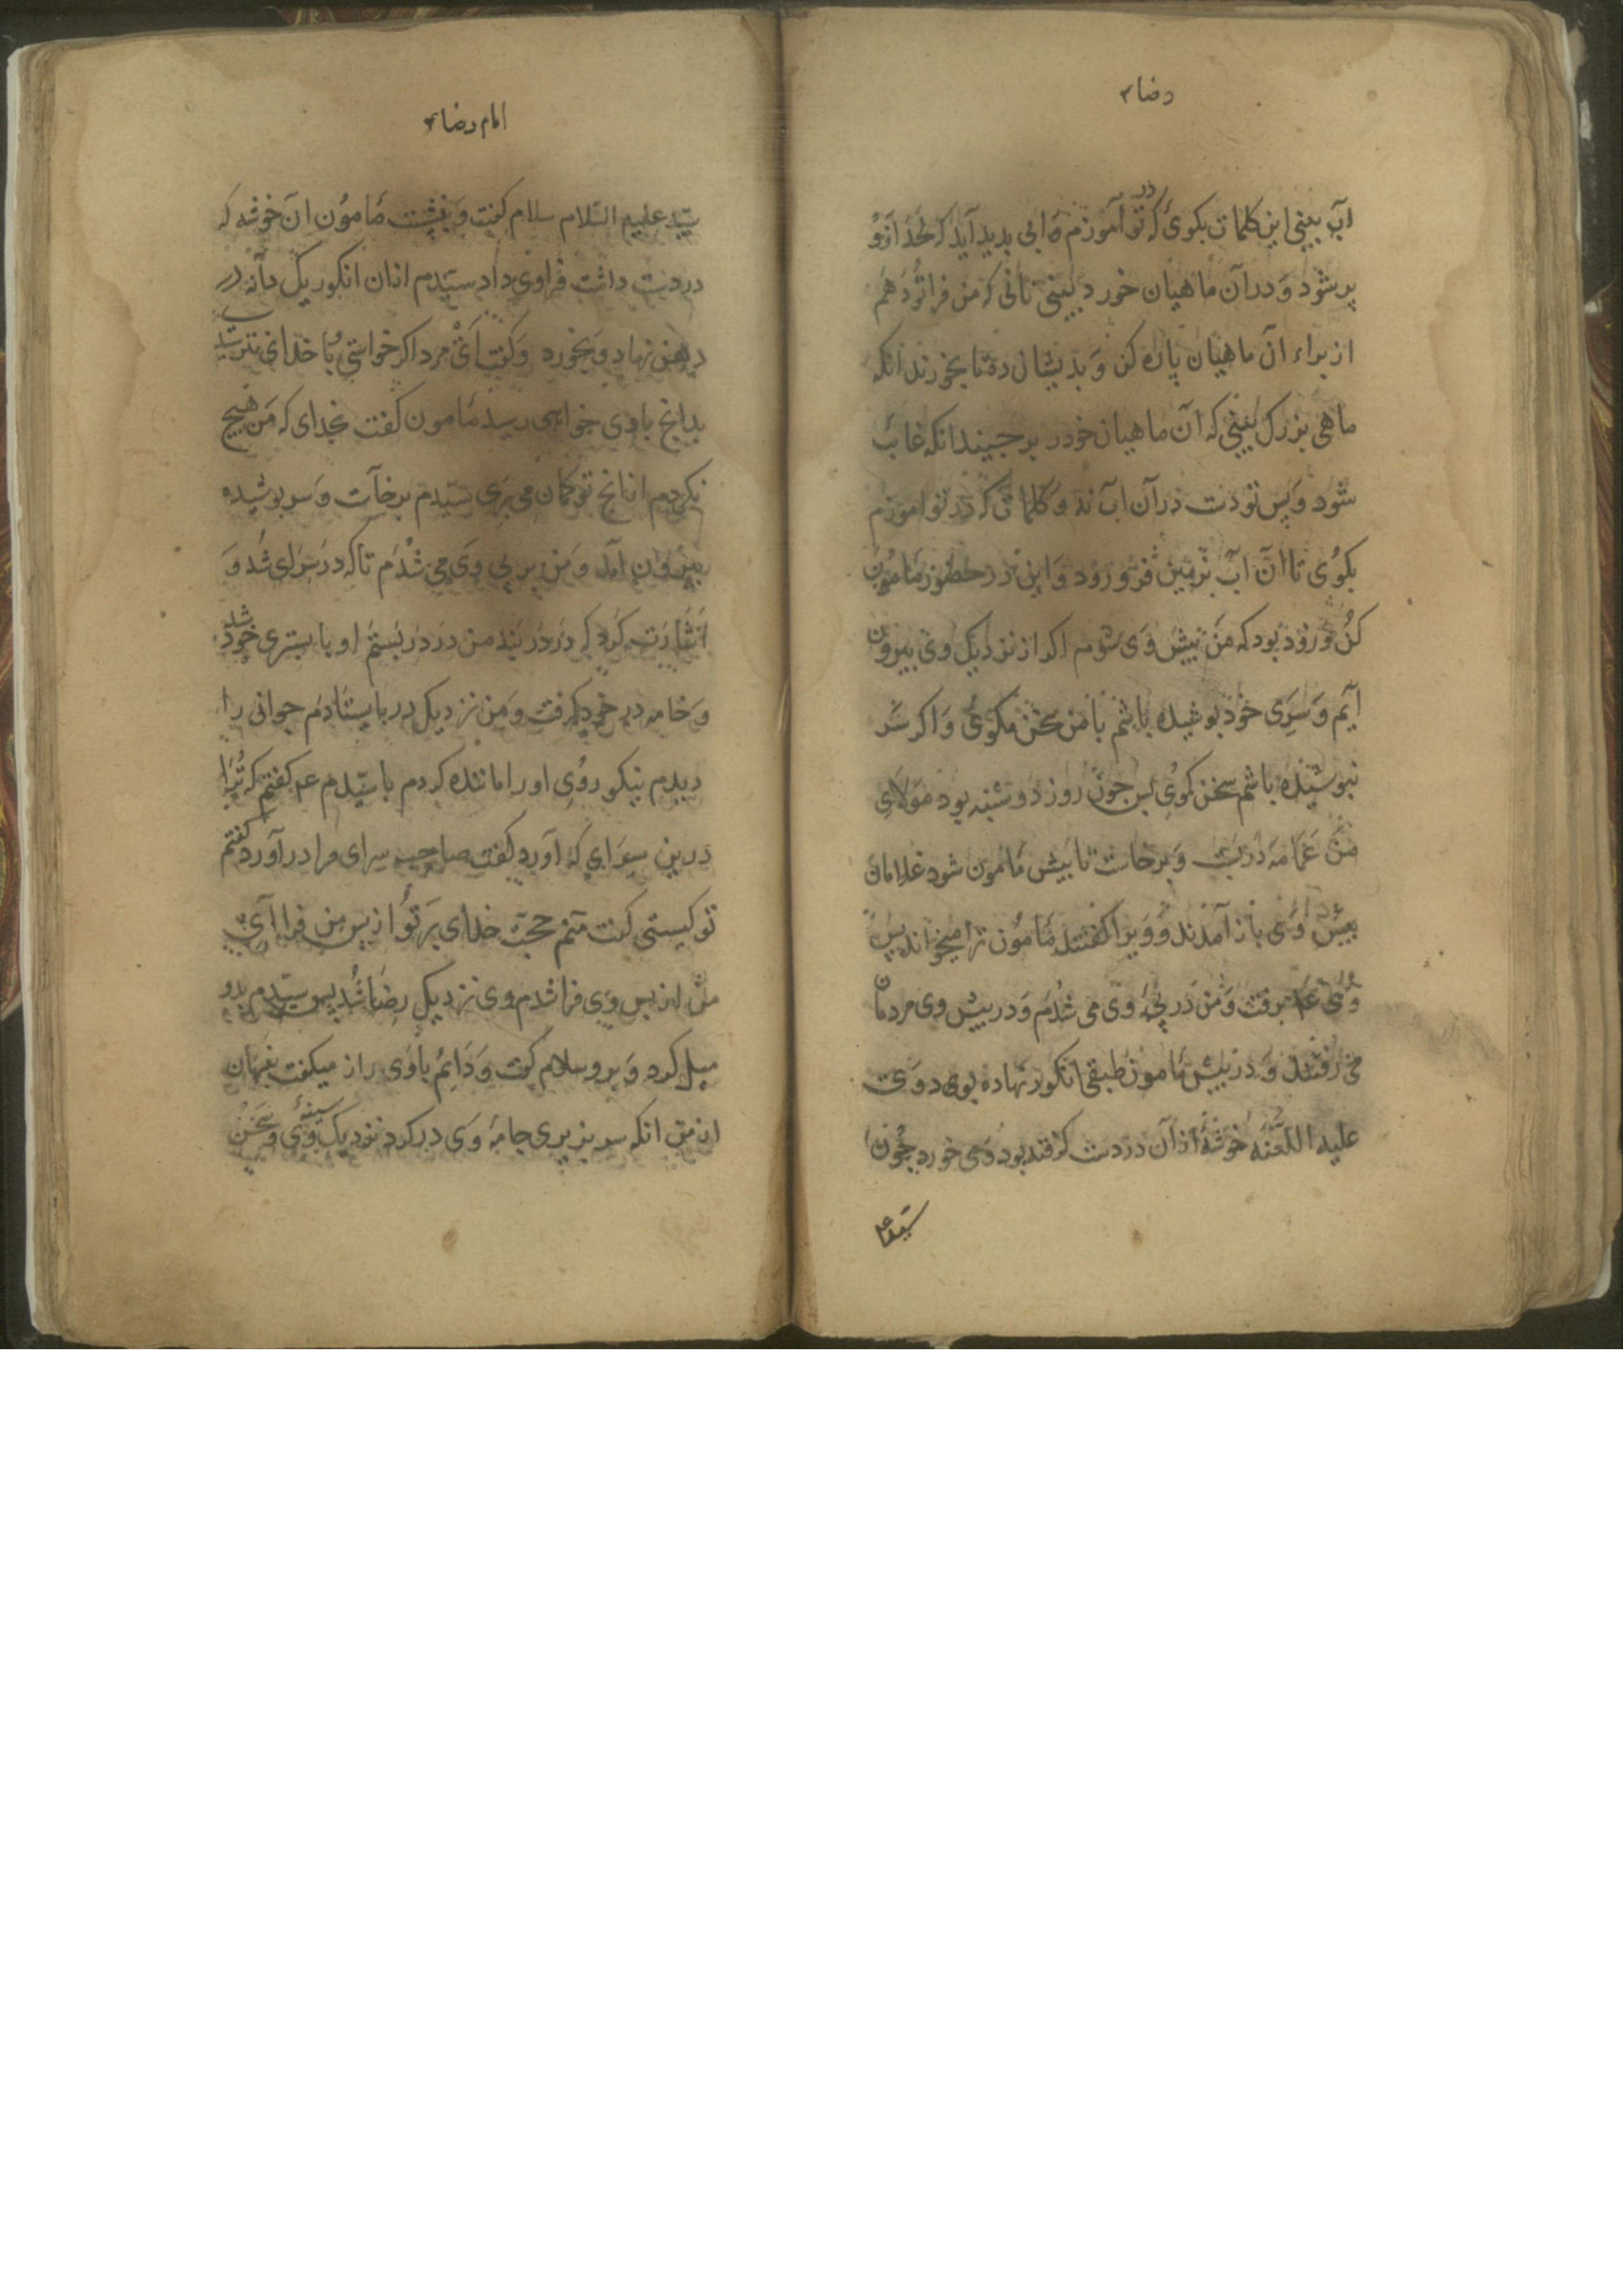 رضا ۴
آب بینی این کلمات بکوی که در تو آموزم آبی بدید آید که لحد ازو
پر شود و در آن ماهیان خورد بینی نانی که من فرا تو دهم
از براء آن ماهیان پاره کن و بدیشان ده تا بخورند انکه
ماهی بزرک بینی که آن ماهیان خورد برجیند انکه غایب
شود و پس تو دست در آن اب نه و کلماتی که در تو اموزم
بکوی تا آن آب بزمین فرو رود و این در حضور مامون
کن و روز بود که من پیش وی شوم اکر از نزدیک وی بیرون
آیم و سری خود بوشیده باشم با من سخن مکوی و اکر سر
نبوشیده باشم سخن کوی بس جون روز دوشنبه بود مولای
من عمامه دربست و برخاست تا بیش مامون شود غلامان
بیش وی باز آمدند و ویرا کفتند مامون ترا میخواند پس
وی ع برفت و من در پی وی می شدم و در پیش وی مردمان
می رفتند و در پیش مامون طبقی انکور نهاده بود و وی
علیه اللعنه خوشهٔ از آن در دست کرفته بود و می خورد چون
سید ع
امام رضا ۴
سید علیه السلام سلام کفت و بنشست مامون ان خوشه که
در دست داشت فرا وی داد سیدم ازان انکور یک دانه در
دهن نهاد و بخورد و کفت ای مرد اکر خواستی با خدای نترسید
بدانچ بادی خواهی رسید مامون کفت بخدای که من هیچ
نکردم ازانچ تو کمان می بری سیدم برخاست و سر بوشیده
بیرون آمد و من بر پی وی می شدم تا که در سرای شد و
اشارت کرد که در دربند من در دربستم او با بستری خود شد
و خامه در خود کرفت و من نزدیک در بایستادم جوانی را
دیدم نیکو روی او را ماننده کردم با سیدم ع کفتم که ترا
درین سرای که آورد کفت صاحب سرای مرا درآورد کفتم
تو کیستی کفت منم حجت خدای بر تو از پس من فرا آی
من از پس وی فرا شدم وی نزدیک رضا شد سیدم بدو
میل کرد و برو سلام کفت و دایم با وی راز میکفت بنهان
از من انکه سر بزیری جامهٔ وی درکرد نزدیک سینهٔ وی و سخن